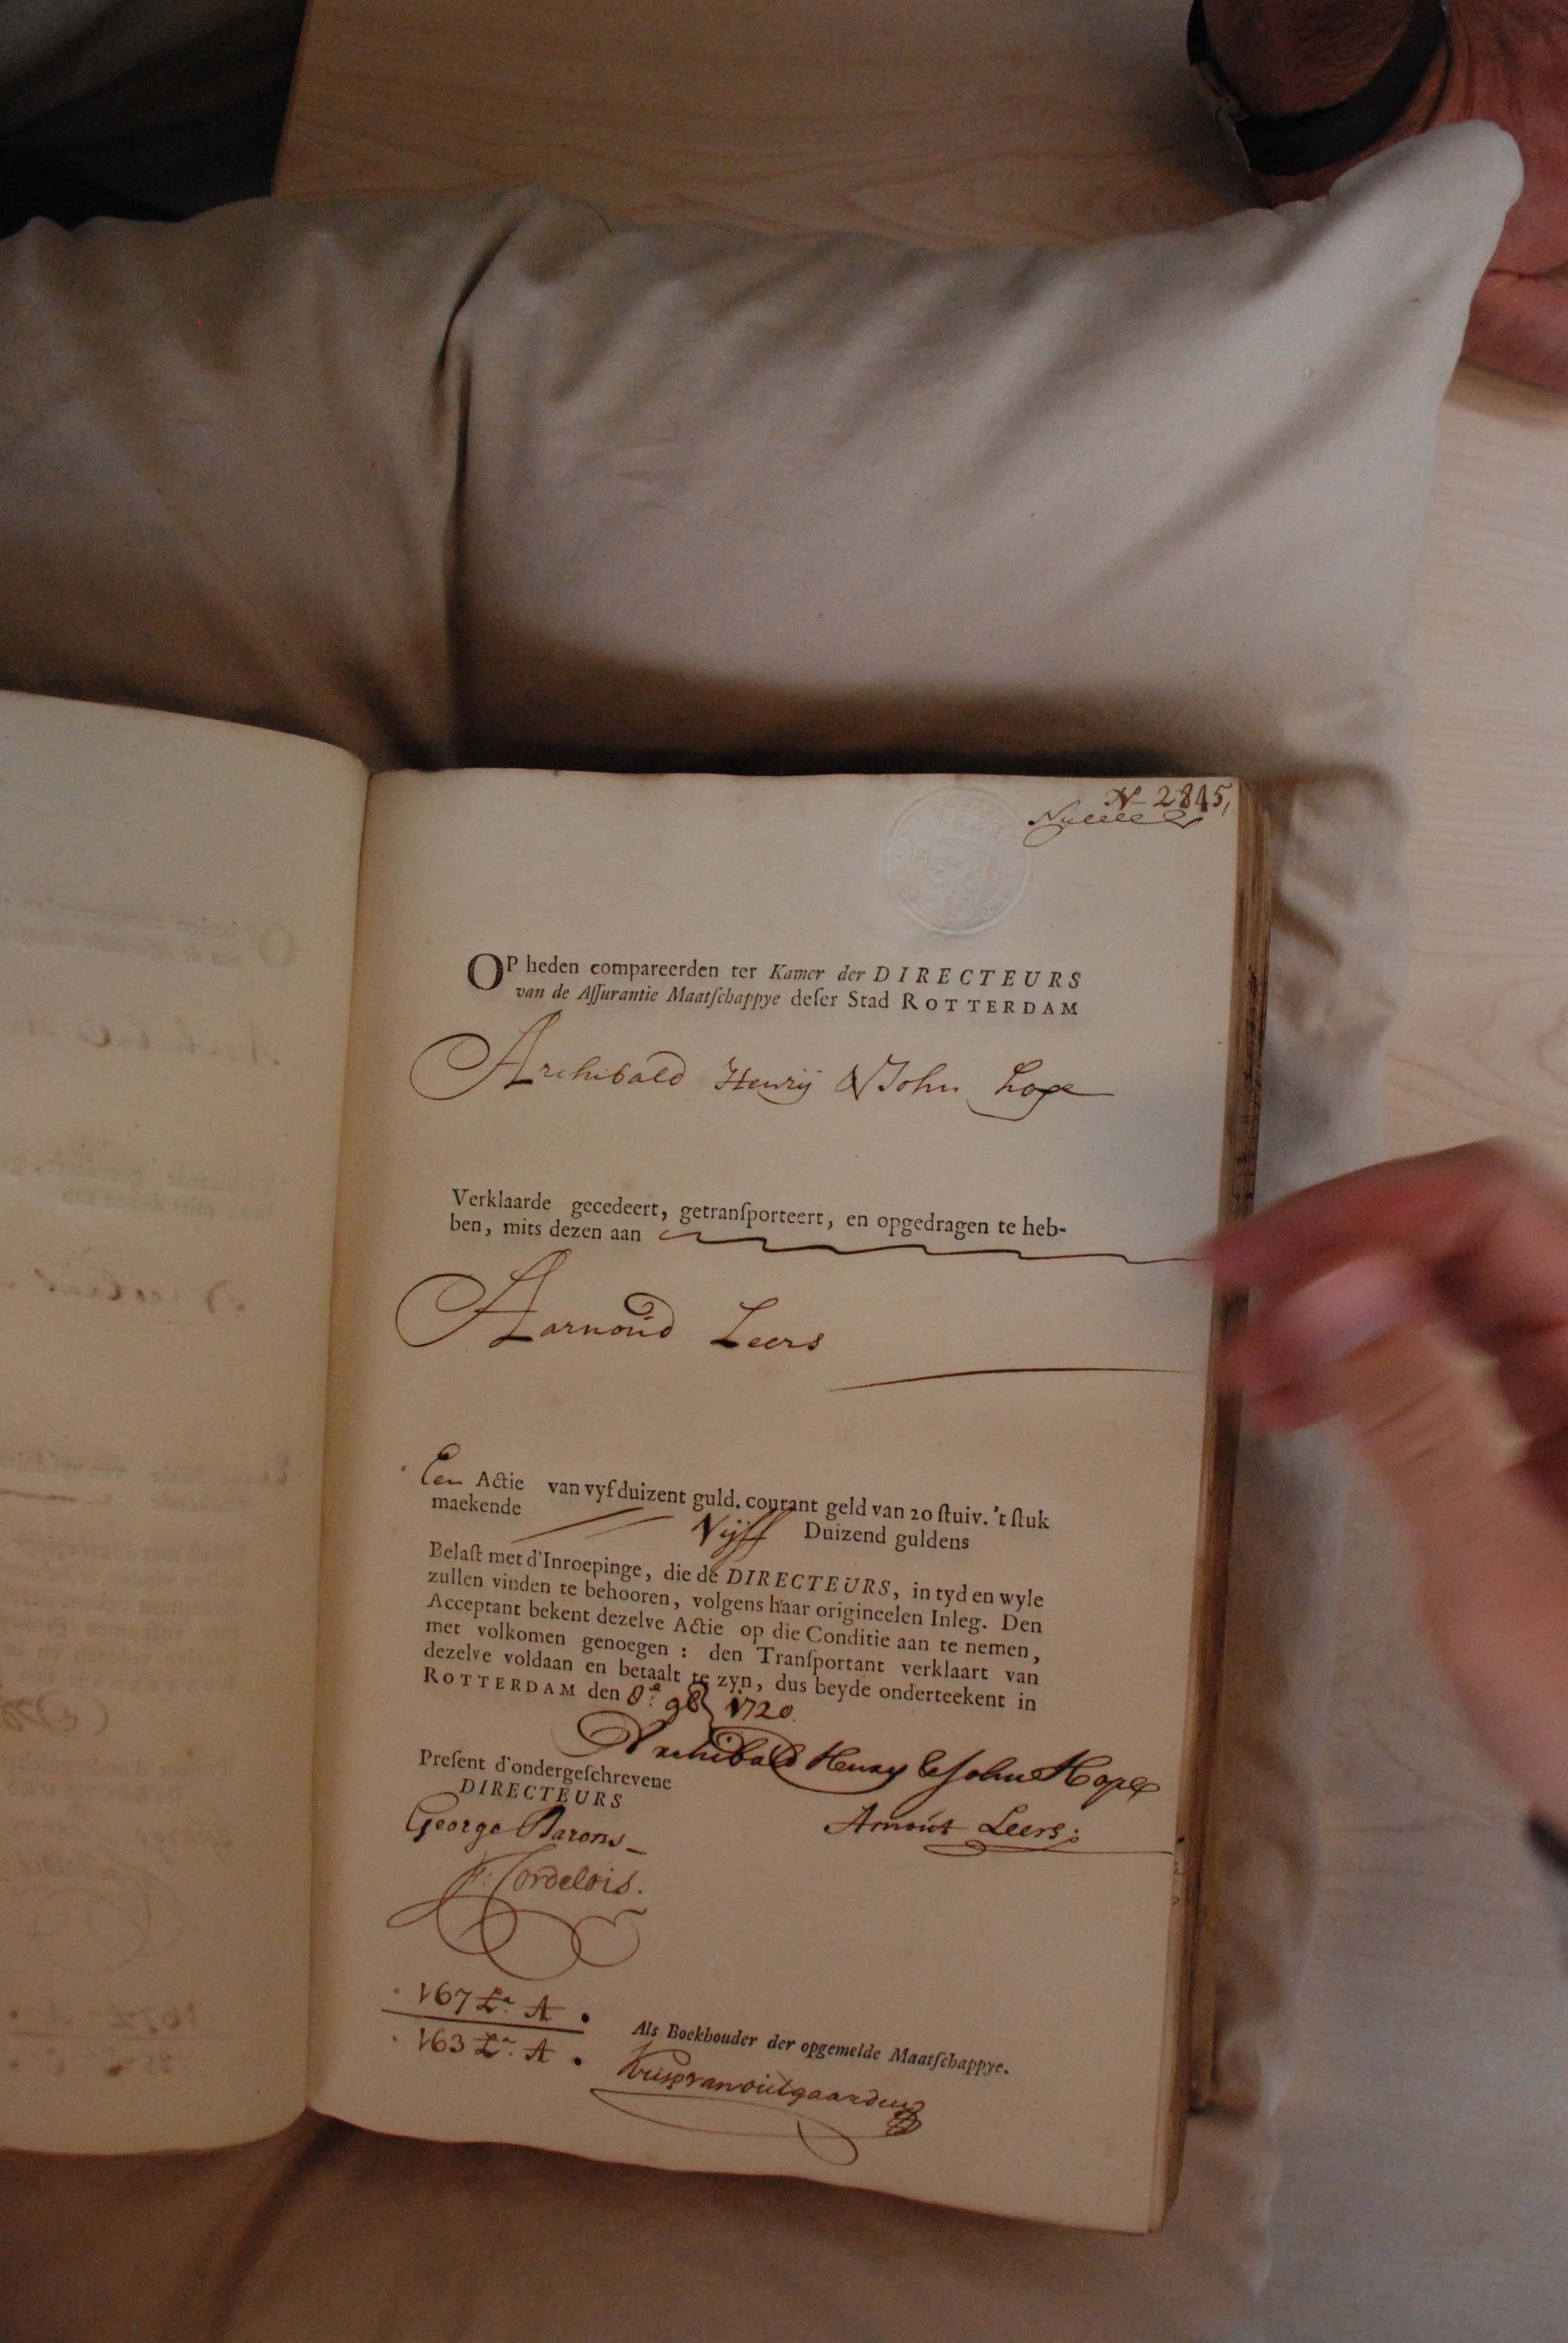 N 2845,
OP heden compareerden ter Kamer der DIRECTEURS
van de Aſſurantie Maatſchappye deſer Stad ROTTERDAM
Archibald Henrij & John Hope
Verklaarde gecedeert, getranſporteert, en opgedragen te heb-
ben, mits dezen aan
Aarnoud Leers
Een Actie van vyfduizent guld. courant geld van 20 ſtuiv. 't ſtuk
maekende Vijff Duizend guldens
Belaſt met d'Inroepinge, die de DIRECTEURS, in tyd en wyle
zullen vinden te behooren, volgens haar origineelen Inleg. Den
Acceptant bekent dezelve Actie op die Conditie aan te nemen,
met volkomen genoegen : den Tranſportant verklaart van
dezelve voldaan en betaalt te zyn, dus beyde onderteekent in
ROTTERDAM den 8e 1720.
Archibald Henry & John Hope
Preſent d'ondergeſchrevene
DIRECTEURS
Arnout Leers:
George Barons
F: Cordelois.
167 La. A
163 La. A
Als Boekhouder der opgemelde Maatſchappye.